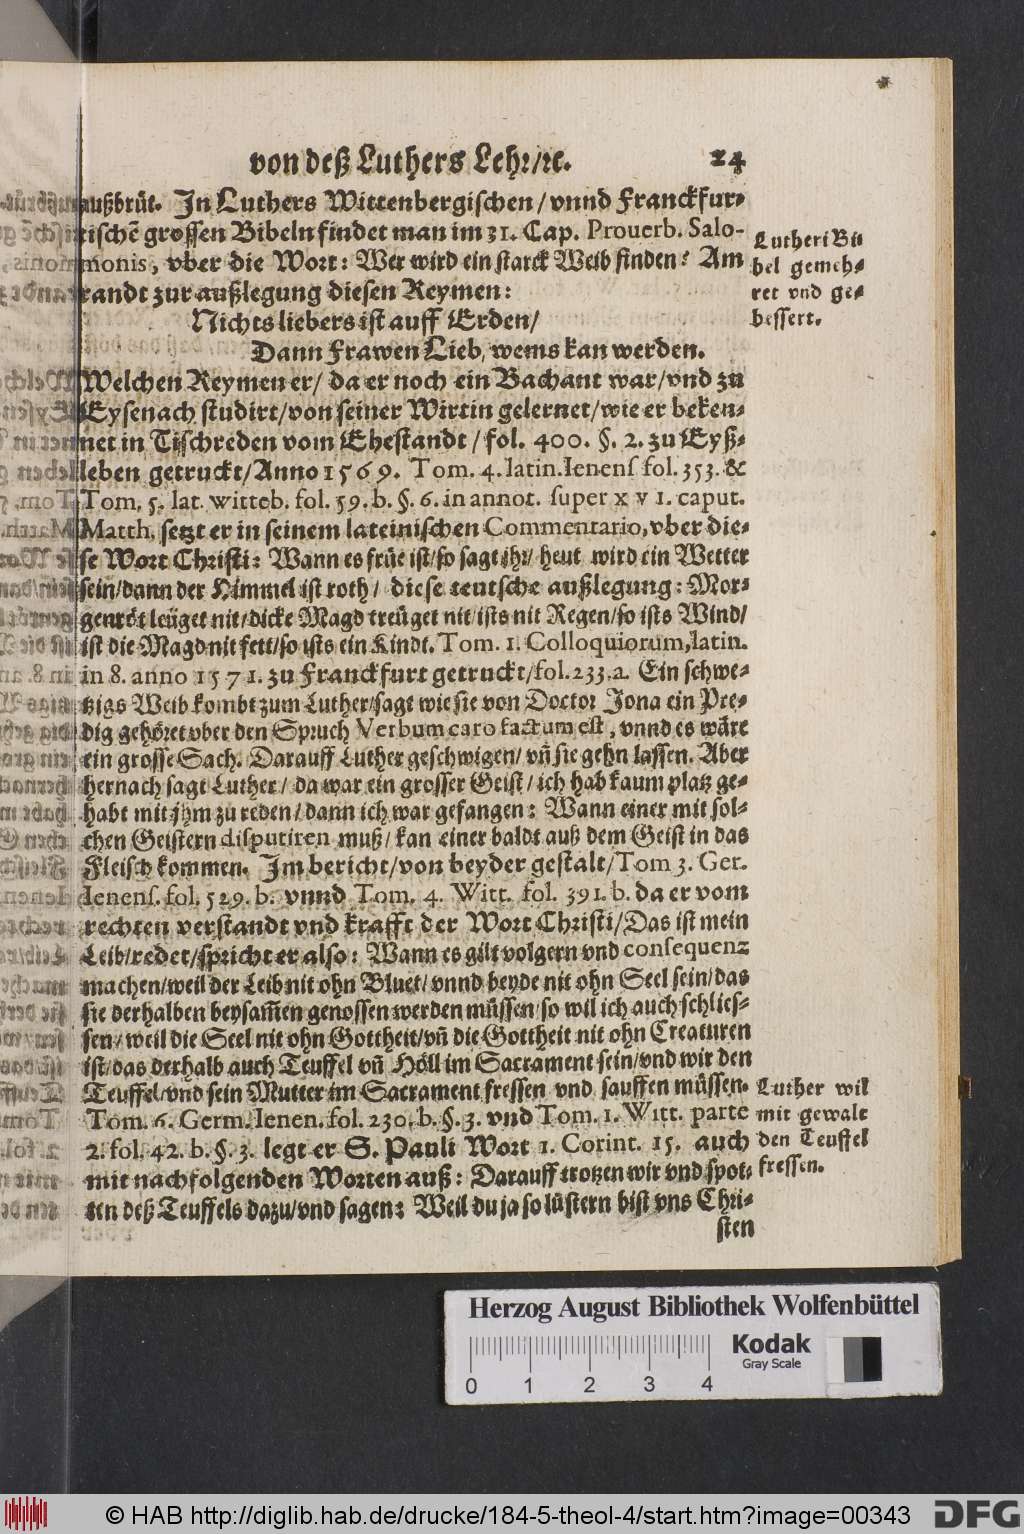 von deß Luthers Lehr/ꝛc. 24
außbrüt. In Luthers Wittenbergischen/ vnnd Franckfur-
tischē grossen Bibeln findet man im 31. Cap. Prouerb. Salo-
monis, vber die Wort: Wer wird ein starck Weib finden? Am
randt zur außlegung diesen Reymen:
Lutheri Bi-
bel gemeh-
ret vnd ge-
bessert.
Nichts liebers ist auff Erden/
Dann Frawen Lieb, wems kan werden.
Welchen Reymen er/ da er noch ein Bachant war/vnd zu
Eysenach studirt/von seiner Wirtin gelernet/wie er beken-
net in Tischreden vom Ehestandt/fol. 400. §. 2. zu Eyß-
leben getruckt/Anno 1569. Tom. 4. latin. Ienens fol. 353. &
Tom. 5. lat. witteb. fol. 59. b. §. 6. in annot. super x v 1. caput.
Matth. setzt er in seinem lateinischen Commentario, vber die-
se Wort Christi: Wann es früe ist/so sagt jhr/ heut wird ein Wetter
sein/dann der Himmel ist roth/ diese teutsche außlegung: Mor-
genröt leüget nit/dicke Magd treüget nit/ists nit Regen/so ists Wind/
ist die Magd nit fett/so ists ein Kindt. Tom. 1. Colloquiorum, latin.
in 8. anno 1571. zu Franckfurt getruckt/fol. 233. a. Ein schwe-
tzigs Weib kombt zum Luther/sagt wie sie von Doctor Jona ein Pre-
dig gehöret vber den Spruch Verbum caro factum est, vnnd es wäre
ein grosse Sach. Darauff Luther geschwigen/ vñ sie gehn lassen. Aber
hernach sagt Luther/ da war ein grosser Geist/ ich hab kaum platz ge-
habt mit jhm zu reden/dann ich war gefangen: Wann einer mit sol-
chen Geistern disputiren muß/ kan einer baldt auß dem Geist in das
Fleisch kommen. Im bericht/von beyder gestalt/Tom 3. Ger.
Ienens. fol. 529. b. vnnd Tom. 4. Witt. fol. 391. b. da er vom
rechten verstandt vnd krafft der Wort Christi/Das ist mein
Leib/redet/spricht er also: Wann es gilt volgern vnd consequenz
machen/weil der Leib nit ohn Bluet/vnnd beyde nit ohn Seel sein/das
sie derhalben beysam̄en genossen werden müssen/so wil ich auch schlies-
sen/weil die Seel nit ohn Gottheit/vñ die Gottheit nit ohn Creaturen
ist/das derhalb auch Teuffel vñ Höll im Sacrament sein/vnd wir den
Teuffel/vnd sein Mutter im Sacrament fressen vnd sauffen müssen.
Tom. 6. Germ. Ienen. fol. 230. b. §. 3. vnd Tom. 1. Witt. parte
2. fol. 42. b. §. 3. legt er S. Pauli Wort 1. Corint. 15. auch
mit nachfolgenden Worten auß: Darauff trotzen wir vnd spot-
ten deß Teuffels dazu/vnd sagen: Weil du ja so lüstern bist vns Chri-
sten
Luther wil
mit gewalt
den Teuffel
fressen.
Herzog August Bibliothek Wolfenbüttel
Kodak
Gray Scale
0 1 2 3 4
© HAB http://diglib.hab.de/drucke/184-5-theol-4/start.htm?image=00343
DFG